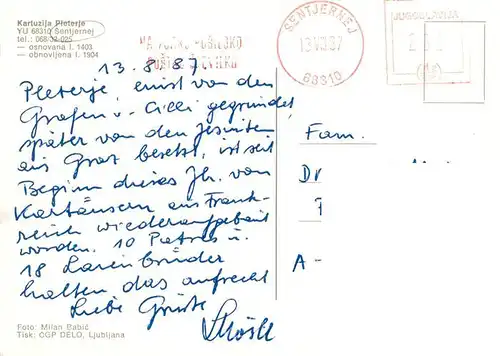 Kartuzija Pleterje
YU 68310 Šentjernej
tel.: 068/
— osnovana l. 1403
— obnovljena l. 1904
ŠENTJERNEJ
13.VIII.87
68310
JUGOSLAVIJA
13.8.87
Pleterje, einst von den
Grafen v. Cilli gegründet,
später von den Jesuiten
aus Graz besetzt, ist seit
Beginn dieses Jh. von
Kartäusern aus Frank-
reich wiederaufgebaut
worden. 10 Patres u.
18 Laienbrüder
halten das aufrecht
Liebe Grüße
Fam.
Dr
A-
Foto: Milan Babič
Tisk: ČGP DELO, Ljubljana